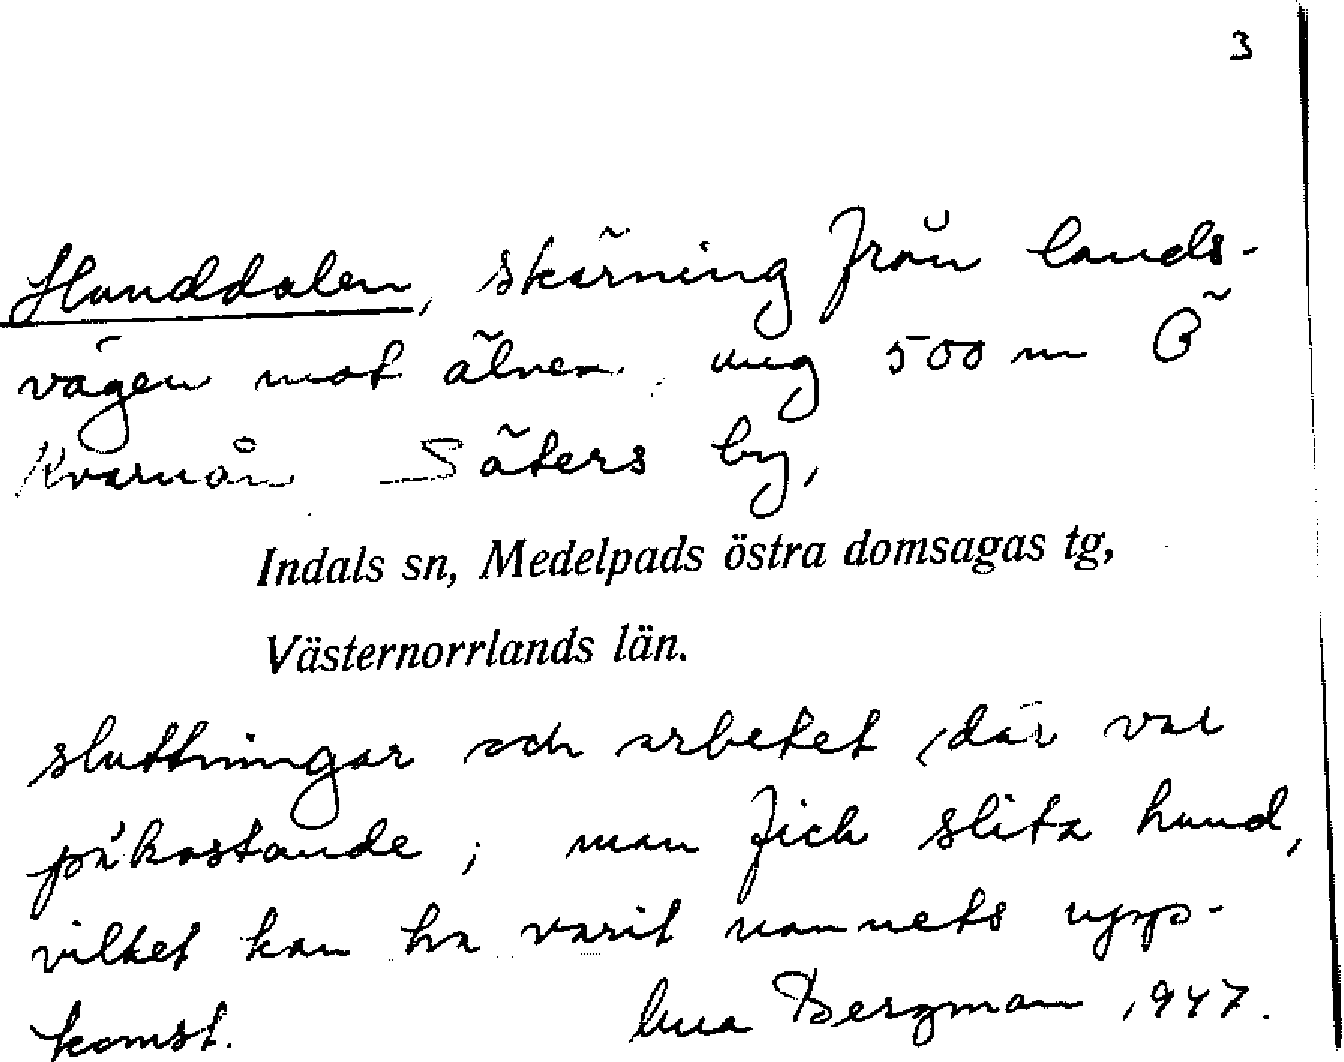 3
Hunddalen, skärning från lands-
vägen mot älven ung 500 m Ö
Kvarnån Säters by,
Indals sn, Medelpads östra domsagas tg,
Västernorrlands län.
sluttningar och arbetet där var
påkostande; man fick slita hund,
vilket kan ha varit namnets upp-
komst. Bergman 1947.